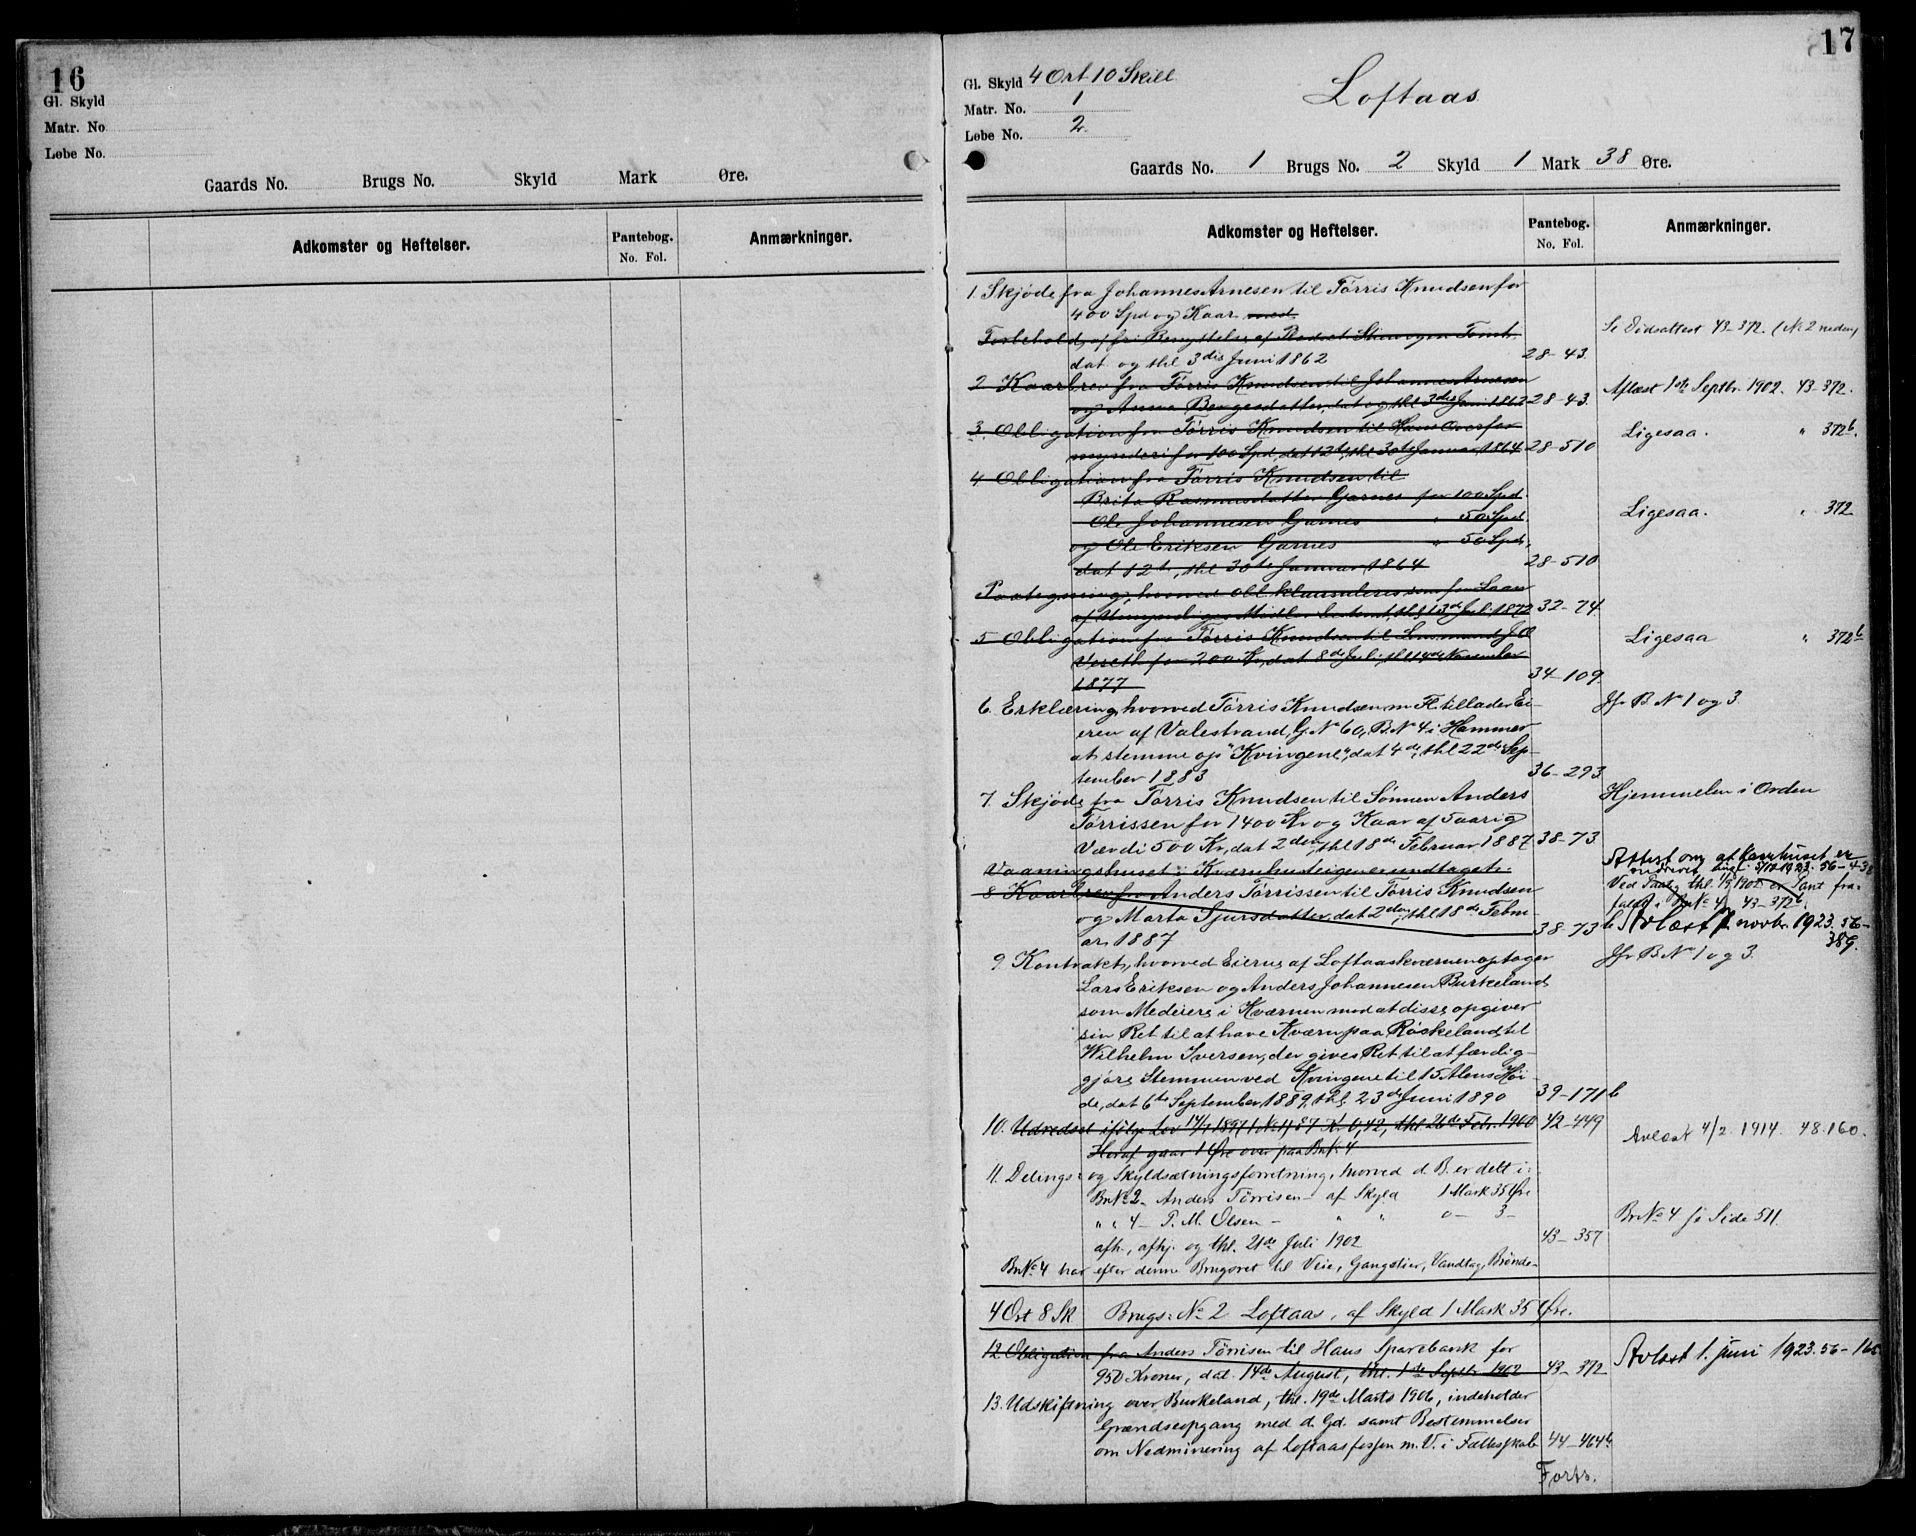 16
Gl. Skyld
Matr. No
Løbe No.
Gaards No. Brugs No. Skyld Mark Øre.
Adkomster og Heftelser. Pantebog. No. Fol. Anmærkninger.
17
Gl. Skyld 4 Ort 10 Skill
Loftaas
Matr. No. 1
Løbe No. 2
Gaards No. 1 Brugs No. 2 Skyld 1 Mark 38 Øre.
Adkomster og Heftelser. Pantebog. No. Fol. Anmærkninger.
1. Skjøde fra Johannes Arnesen til Tørris Knudsen for
400 Spd og Kaar med
Forbehold af fri Benyttelse af
Se Dødsattest 43-372. (No 2 neden)
dat og thl 3die Juni 1862 28-43.
2. Kaarbrev fra Tørris Knudsen til Johannes Arnesen
og Anna dat og thl 3die Juni 1862 28-43. Aflæst 1ste Septbr. 1902. 43-372.
3. Obligation fra Tørris Knudsen til Haus Overfor-
mynderi for 100 Spd, dat 12te, thl 30te Januar 1864 28-510 Ligesaa. " 372b.
4. Obligation fra Tørris Knudsen til
Brita Rasmusdatter Garnes for 100 Spd.
Ole Johannesen Garnes " 50 Spd. Ligesaa. " 372
og Ole Eriksen Garnes " 50 Spd.
dat 12te, thl 30te Januar 1864 28-510
Paategning, hvorved Obl. klausuleres som for Laan
af Umyndiges Midler 1872 32-74.
5. Obligation fra Tørris Knudsen til Lensmand J Ø
for 200 Kr, dat 8de Juli, thl 14de November Ligesaa " 372b
1877 34-109.
6. Erklæring, hvorved Tørris Knudsen m Fl. tillader Ei- Jfr B No 1 og 3.
eren af Valestrand, G No 60, B No 4 i Hammer
at stemme op "Kvingene", dat 4de, thl 22de Sep-
tember 1883 36-293.
7. Skjøde fra Tørris Knudsen til Sønnen Anders Hjemmelen i Orden
Tørrissen for 1400 Kr og Kaar af 5aarig
Værdi 500 Kr, dat 2den, thl 18de Februar 1887 38-73.
Vaaningshuset i Kvernhusteigen er undtaget. Attest om at Kaarhuset er
56-438
8. Kaarbrev fra Anders Tørrissen til Tørris Knudsen Ved Paateg. thl. 1902 er Samt fra-
og Marta Sjursdatter, dat 2den, thl 18de Febru- faldt i BrNo 4. 43-372b.
ar, 1887 38-73 b Avlæst 7. novbr. 1923. 56-
389.
9. Kontrakt, hvorved Eierne af Loftaaskværnen optager Jfr B No 1 og 3.
Lars Eriksen og Anders Johannesen Burkeland
som Medeiere i Kværnen mod at disse opgiver
sin Ret til at have Kværn paa Røskeland til
Wilhelm Iversen, der gives Ret til at færdig-
gjøre Stemmen ved Kvingene til 15 Alens Høi-
de, dat 6te September 1889, thl. 23de Juni 1890 39-171 b
10. Udredsel ifølge Lov 1897 Kr. 0,42, thl 26de Febr. 1900 42-449 Avlæst 4/2 1914. 48.160.
Heraf gaar 1 Øre over paa BrNo 4
11. Delings- og Skyldsætningsforretning, hvorved d. B. er delt i:
BrNo 2 - Anders Tørrisen - af Skyld 1 Mark 35 Øre
" " 4 - P. M. Olsen - " " 0 - 3 - BrNo 4 se Side 511.
afh., afhj. og thl. 21de Juli 1902 43-357
BrNo 4 har efter denne Brugsret til Veie, Gangstier, Vandtag, Brønde-
4 Ort 8 Sk Brugs: No 2 Loftaas, af Skyld 1 Mark 35 Øre.
12. Obligation fra Anders Tørrisen til Haus Sparebank for Avlæst 1. juni 1923. 56-
950 Kroner, dat. 14de August, thl. 1ste Septbr 1902 43-372
13. Udskiftning over Burkeland, thl. 19de Marts 1906, indeholder
Grændseopgang med d. Gd. samt Bestemmelser
om Nedminering af Loftaasfossen m. V. i Fællesskab 44-464b
Forts.